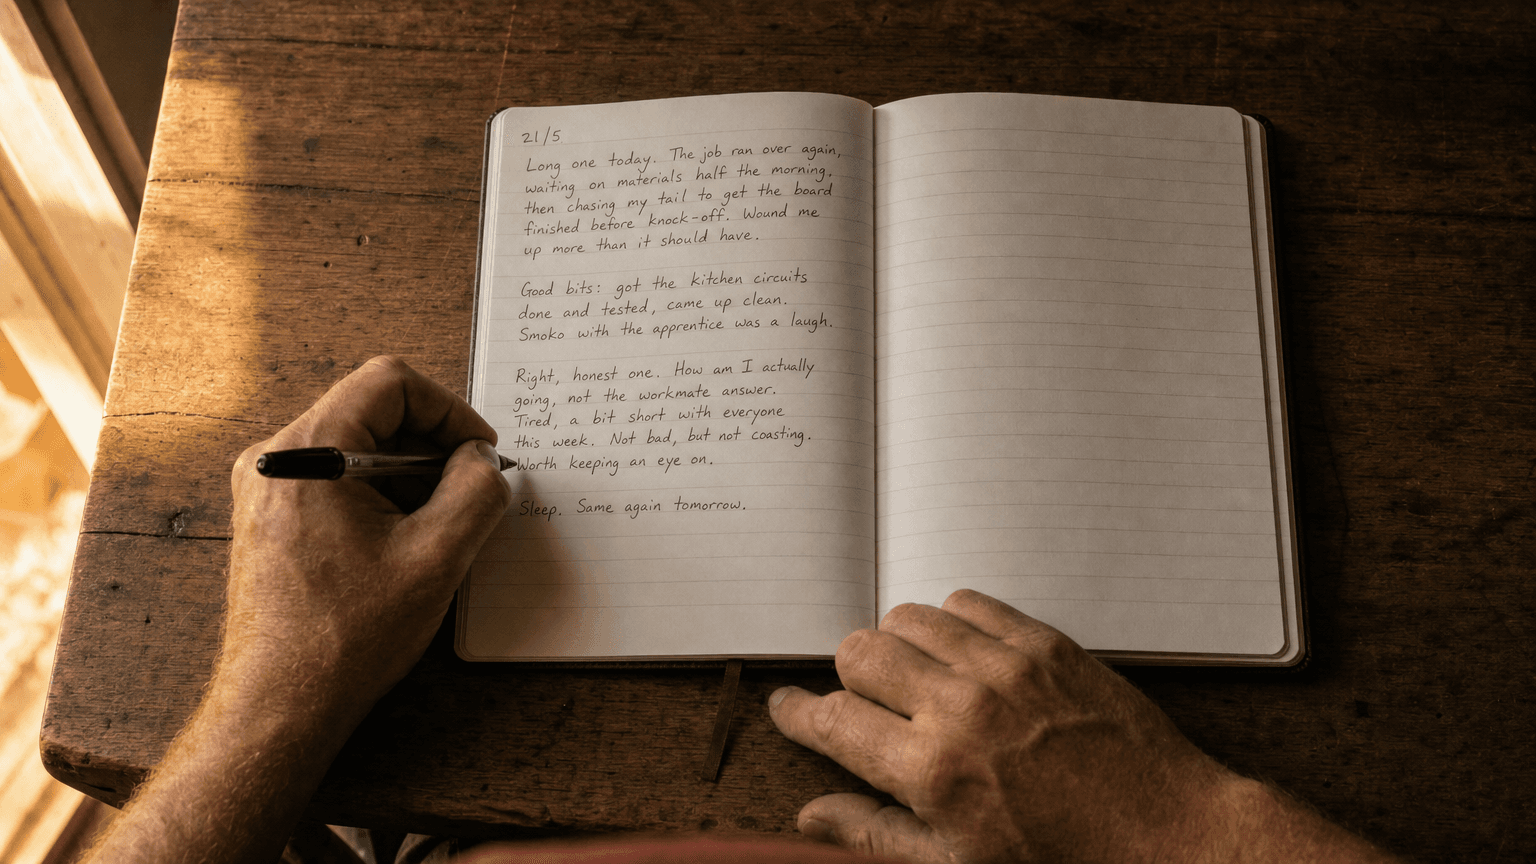 21/5.
Long one today. The job ran over again,
waiting on materials half the morning,
then chasing my tail to get the board
finished before knock-off. Wound me
up more than it should have.
Good bits: got the kitchen circuits
done and tested, came up clean.
Smoko with the apprentice was a laugh.
Right, honest one. How am I actually
going, not the workmate answer.
Tired, a bit short with everyone
this week. Not bad, but not coasting.
Worth keeping an eye on.
Sleep. Same again tomorrow.